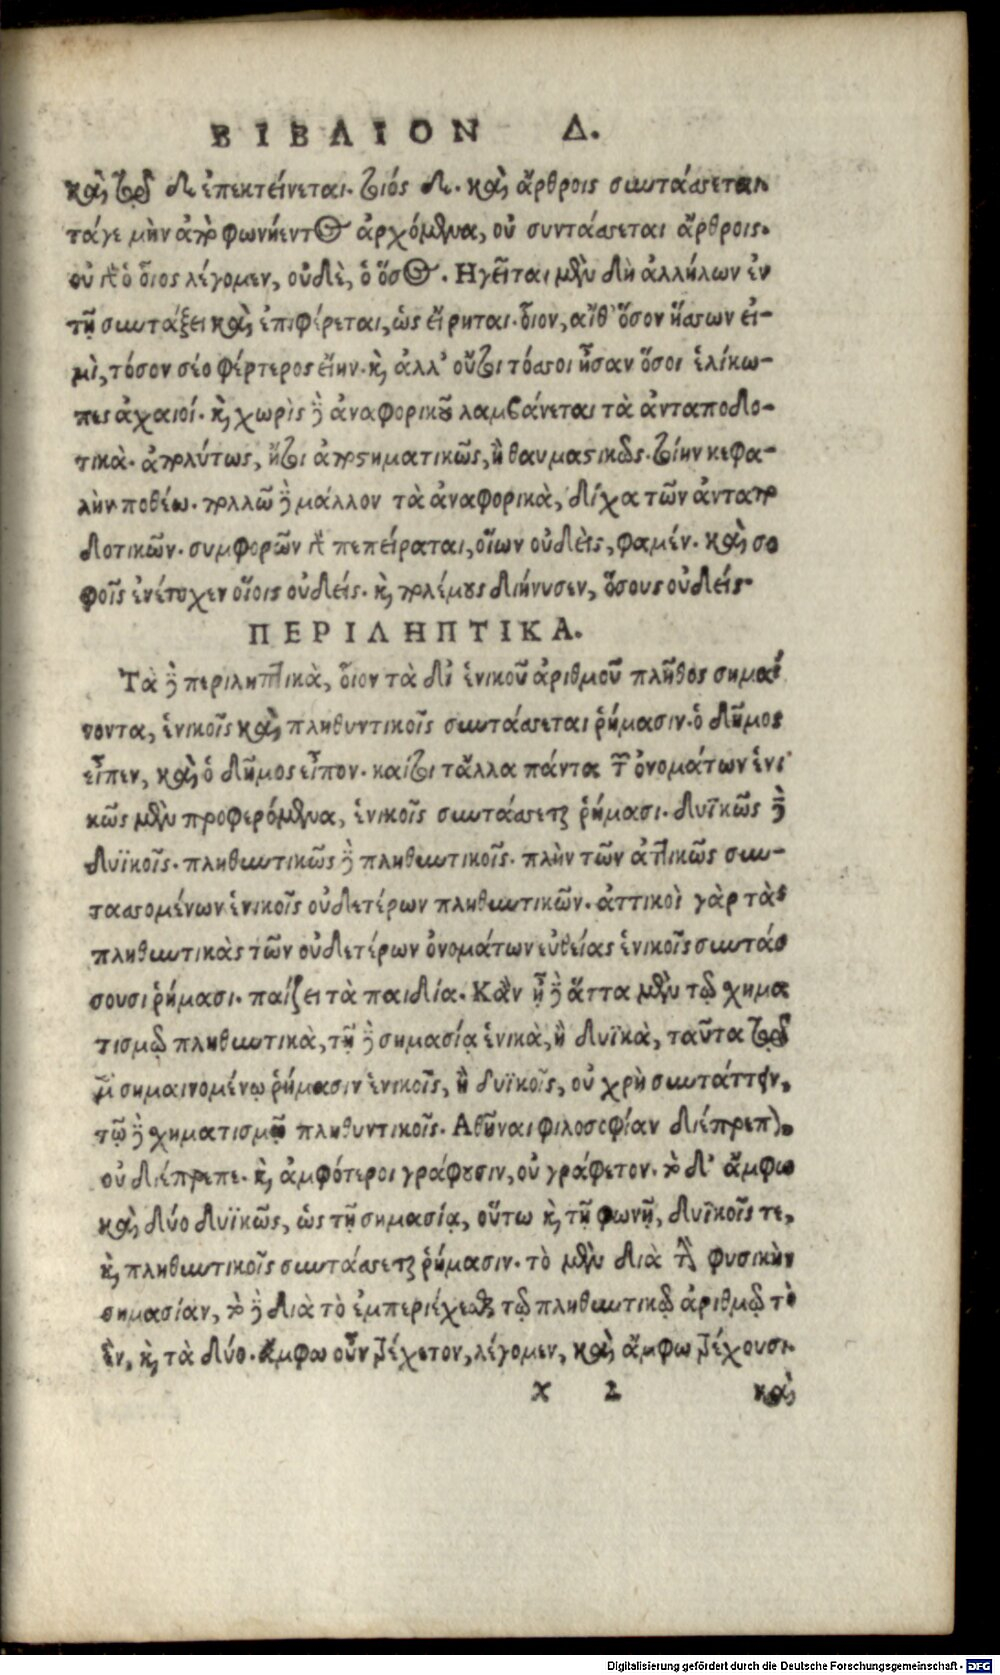 ΒΙΒΛΙΟΝ Δ.
καὶ τῷ δε ἐπεκτείνεται. τοιόσδε. καὶ ἄρθροις συντάσσεται.
τάγε μὴν ἀπὸ φωνήεντος ἀρχόμενα, οὐ συντάσσεται ἄρθροις.
οὐ γὰρ ὁ οἷος λέγομεν, οὐδὲ, ὁ ὅσος. Ηγεῖται μὲν δὴ ἀλλήλων ἐν
τῇ συντάξει καὶ ἐπιφέρεται, ὡς εἴρηται. οἷον, αἴθ' ὅσον ἥσσων εἰ-
μὶ, τόσον σέο φέρτερος εἴην. καὶ ἀλλ' οὔτι τόσσοι ἦσαν ὅσοι ἑλίκω-
πες ἀχαιοί. καὶ χωρὶς δὲ ἀναφορικοῦ λαμβάνεται τὰ ἀνταποδο-
τικὰ. ἀπολύτως, ἤτοι ἀποστηματικῶς, ἢ θαυμαστικῶς. τοίην κεφα-
λὴν ποθέω. πολλῶ δὲ μάλλον τὰ ἀναφορικὰ, δίχα τῶν ἀνταπο
δοτικῶν. συμφορῶν γὰρ πεπείραται, οἵων οὐδεὶς, φαμέν. καὶ σο
φοῖς ἐνέτυχεν οἵοις οὐδείς. καὶ πολέμους διήνυσεν, ὅσους οὐδείς.
ΠΕΡΙΛΗΠΤΙΚΑ.
Τὰ δὲ περιληπτικὰ, οἷον τὰ δι' ἑνικοῦ ἀριθμοῦ πλῆθος σημαί
νοντα, ἑνικοῖς καὶ πληθυντικοῖς συντάσσεται ῥήμασιν. ὁ δῆμος
εἶπεν, καὶ ὁ δῆμος εἶπον. καίτοι τἄλλα πάντα τῶν ὀνομάτων ἑνι
κῶς μὲν προφερόμενα, ἑνικοῖς συντάσσεται ῥήμασι. δυϊκῶς δὲ
δυϊκοῖς. πληθυντικῶς δὲ πληθυντικοῖς. πλὴν τῶν ἀττικῶς συν-
τασσομένων ἑνικοῖς οὐδετέρων πληθυντικῶν. ἀττικοὶ γὰρ τὰς
πληθυντικὰς τῶν οὐδετέρων ὀνομάτων εὐθείας ἑνικοῖς συντάσ
σουσι ῥήμασι. παίζει τὰ παιδία. Κἂν ᾖ δὲ ἅττα μὲν τῷ χημα
τισμῷ πληθυντικὰ, τῇ δὲ σημασίᾳ ἑνικὰ, ἢ δυϊκὰ, ταῦτα τῷ
μὲν σημαινομένῳ ῥήμασιν ἑνικοῖς, ἢ δυϊκοῖς, οὐ χρὴ συντάττειν,
τῷ δὲ χηματισμῷ πληθυντικοῖς. Αθῆναι φιλοσοφίαν διέπρεπον.
οὐ διέπρεπε. καὶ ἀμφότεροι γράφουσιν, οὐ γράφετον. τὸ δ' ἄμφω
καὶ δύο δυϊκῶς, ὡς τῇ σημασίᾳ, οὕτω καὶ τῇ φωνῇ, δυϊκοῖς τε,
καὶ πληθυντικοῖς συντάσσεται ῥήμασιν. τὸ μὲν διὰ τὴν φυσικὴν
σημασίαν, τὸ δὲ διὰ τὸ ἐμπεριέχεσθαι τῷ πληθυντικῷ ἀριθμῷ τὸ
ἓν, καὶ τὰ δύο. ἄμφω οὖν τρέχετον, λέγομεν, καὶ ἄμφω τρέχουσι.
χ 2 καὶ
Digitalisierung gefördert durch die Deutsche Forschungsgemeinschaft - DFG